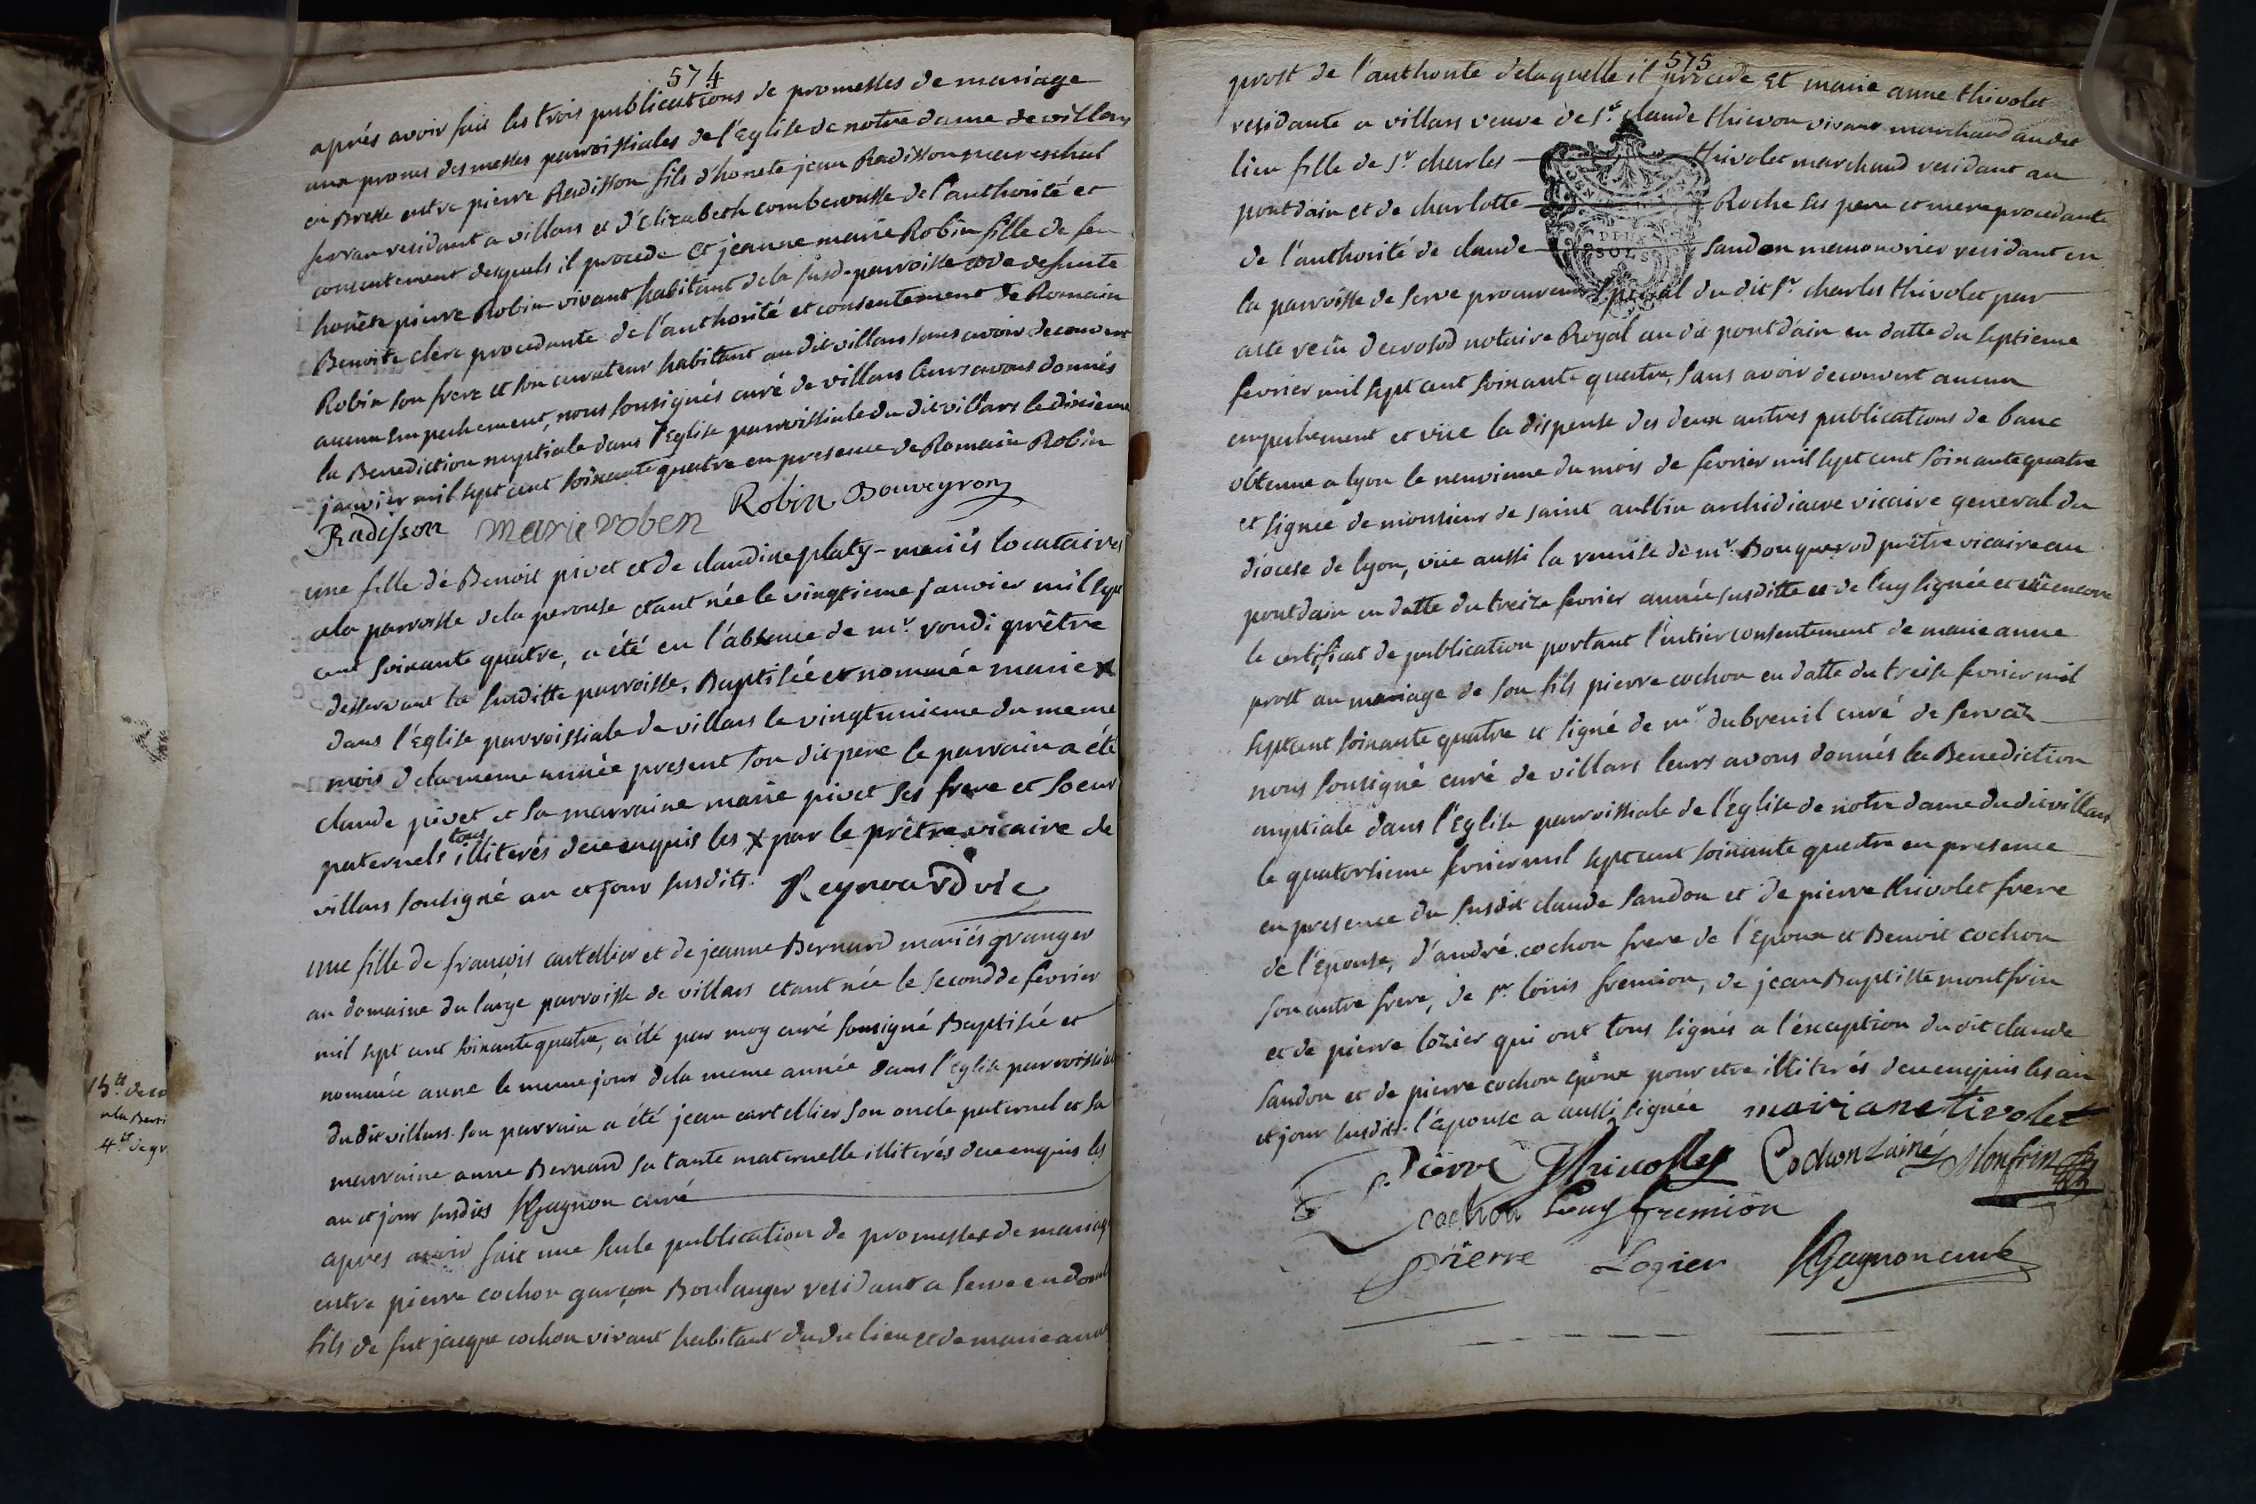 574
aprés avoir fait les trois publications de promesses de mariage
aux prones des messes parroissiales de l'Eglise de notre dame de villars
en Bresse entre pierre Radisson fils d'honete jean Radisson mareschal
ferran residant a villars et d'Elizabeth combewousse de l'authorité et
consentement desquels il procede Et jeanne marie Robin fille de feu
honête pierre Robin vivant habitant de la susd. parroisse et de defunte
Benoite clerc procedante de l'authorité et consentement de Romain
Robin son frere et son curateur habitant au dit villars sans avoir decouvert
aucun Empechement, nous sousignés curé de villars leurs avons donnés
la Benediction nuptiale dans l'Eglise parroissiale du dit villars le dixieme
janvier mil sept cent soixante quatre en presence de Romain Robin
Radisson marie roben Robin Bouveyron
une fille de Benoit pivet et de claudine platy mariés locataires
a la parroisse de la perouse etant née le vingtieme janvier mil sept
cent soixante quatre, a été en l'absence de mr. prêtre
desservant la susditte parroisse, Baptisée et nommée marie x
dans l'église parroissiale de villars le vingtunieme du meme
mois de la meme année present son dit pere le parrain a été
claude pivet et sa marraine marie pivet ses frere et soeur
paternels tous illiterés de ce enquis les x par le prêtre vicaire de
villars sousigné an et jour susdits. Reynard vic
une fille de françois cartellier et de jeanne Bernard mariés granger
au domaine du large parroisse de villars etant née le second de fevrier
mil sept cent soixante quatre, a été par moy curé sousigné Baptisée et
nommée anne le meme jour de la meme année dans l'Eglise parroissiale
du dit villars. son parrain a été jean cartellier son oncle paternel et sa
marraine anne Bernard sa tante maternelle illiterés de ce enquis les
an et jour susdits Gagnon curé
apres avoir fait une seule publication de promesses de mariage
entre pierre cochon garçon Boulanger residant a serve en
fils de fut jacque cochon vivant habitant du du lieu et de marie anne
15.
4.
575
prost de l'authorite delaquelle il procede Et marie anne thivolet
residante a villars veuve de Sr. claude thievon vivant marchand au dit
lieu fille de Sr. charles thivolet marchand residant au
pontdain et de charlotte Roche ses pere et mere procedante
de l'authorité de claude Sandon manouvrier residant en
DEUX
SOLS
la parroisse de serve procureur special du dit Sr. charles thivolet par
acte reçû notaire Royal au dit pontdain en datte du septieme
fevrier mil sept cent soixante quatre, sans avoir decouvert aucun
empechement et vüe la dispense des deux autres publications de banc
obtenue a lyon le neuvieme du mois de fevrier mil sept cent soixante quatre
et signée de monsieur de saint aulbin archidiacre vicaire general du
diocese de lyon, vüe aussi la remise de mr. Bouquerod prêtre vicaire au
pontdain en datte du treize fevrier année susditte et de luy signée et vû encore
le certificat de publication portant l'entier consentement de marie anne
prost au mariage de son fils pierre cochon en datte du treize fevrier mil
sept cent soixante quatre et signé de mr. dubreuil curé de servaz
nous sousigné curé de villars leurs avons donnés la Benediction
nuptiale dans l'Eglise parroissiale de l'Eglise de notre dame du dit villars
le quatorzieme fevrier mil sept cent soixante quatre en presence
en presence du susdit claude Sandon et de pierre thivolet frere
de l'epouse, d'andré cochon frere de l'époux et Benoit cochon
son autre frere, de sr. loüis fremion, de jean Baptiste montfrin
et de pierre lozier qui ont tous signés a l'exception du dit claude
Sandon et de pierre cochon epoux pour etre illiterés de ce enquis les an
et jour susdits. l'épouse a aussi signée mariane tivolet
Pierre Cochon Lainé Monfrin
cochon Louy fremion
pierre Lozier Gagnon curé